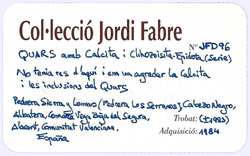 Col·lecció Jordi Fabre
Nº JFD96
QUARS amb Calcita i Clinozoisita-Epidota (Serie)
No tenia res d'aquí i em va agradar la Calcita
i les inclusions del Quars
Pedrera Sierra y Lomas (Pedrera Los Serranos), Cabezo Negro,
Albatera, Comarca Vega Baja del Segura,
Alacant, Comunitat Valenciana,
España
Trobat: (±1983)
Adquisició: 1984